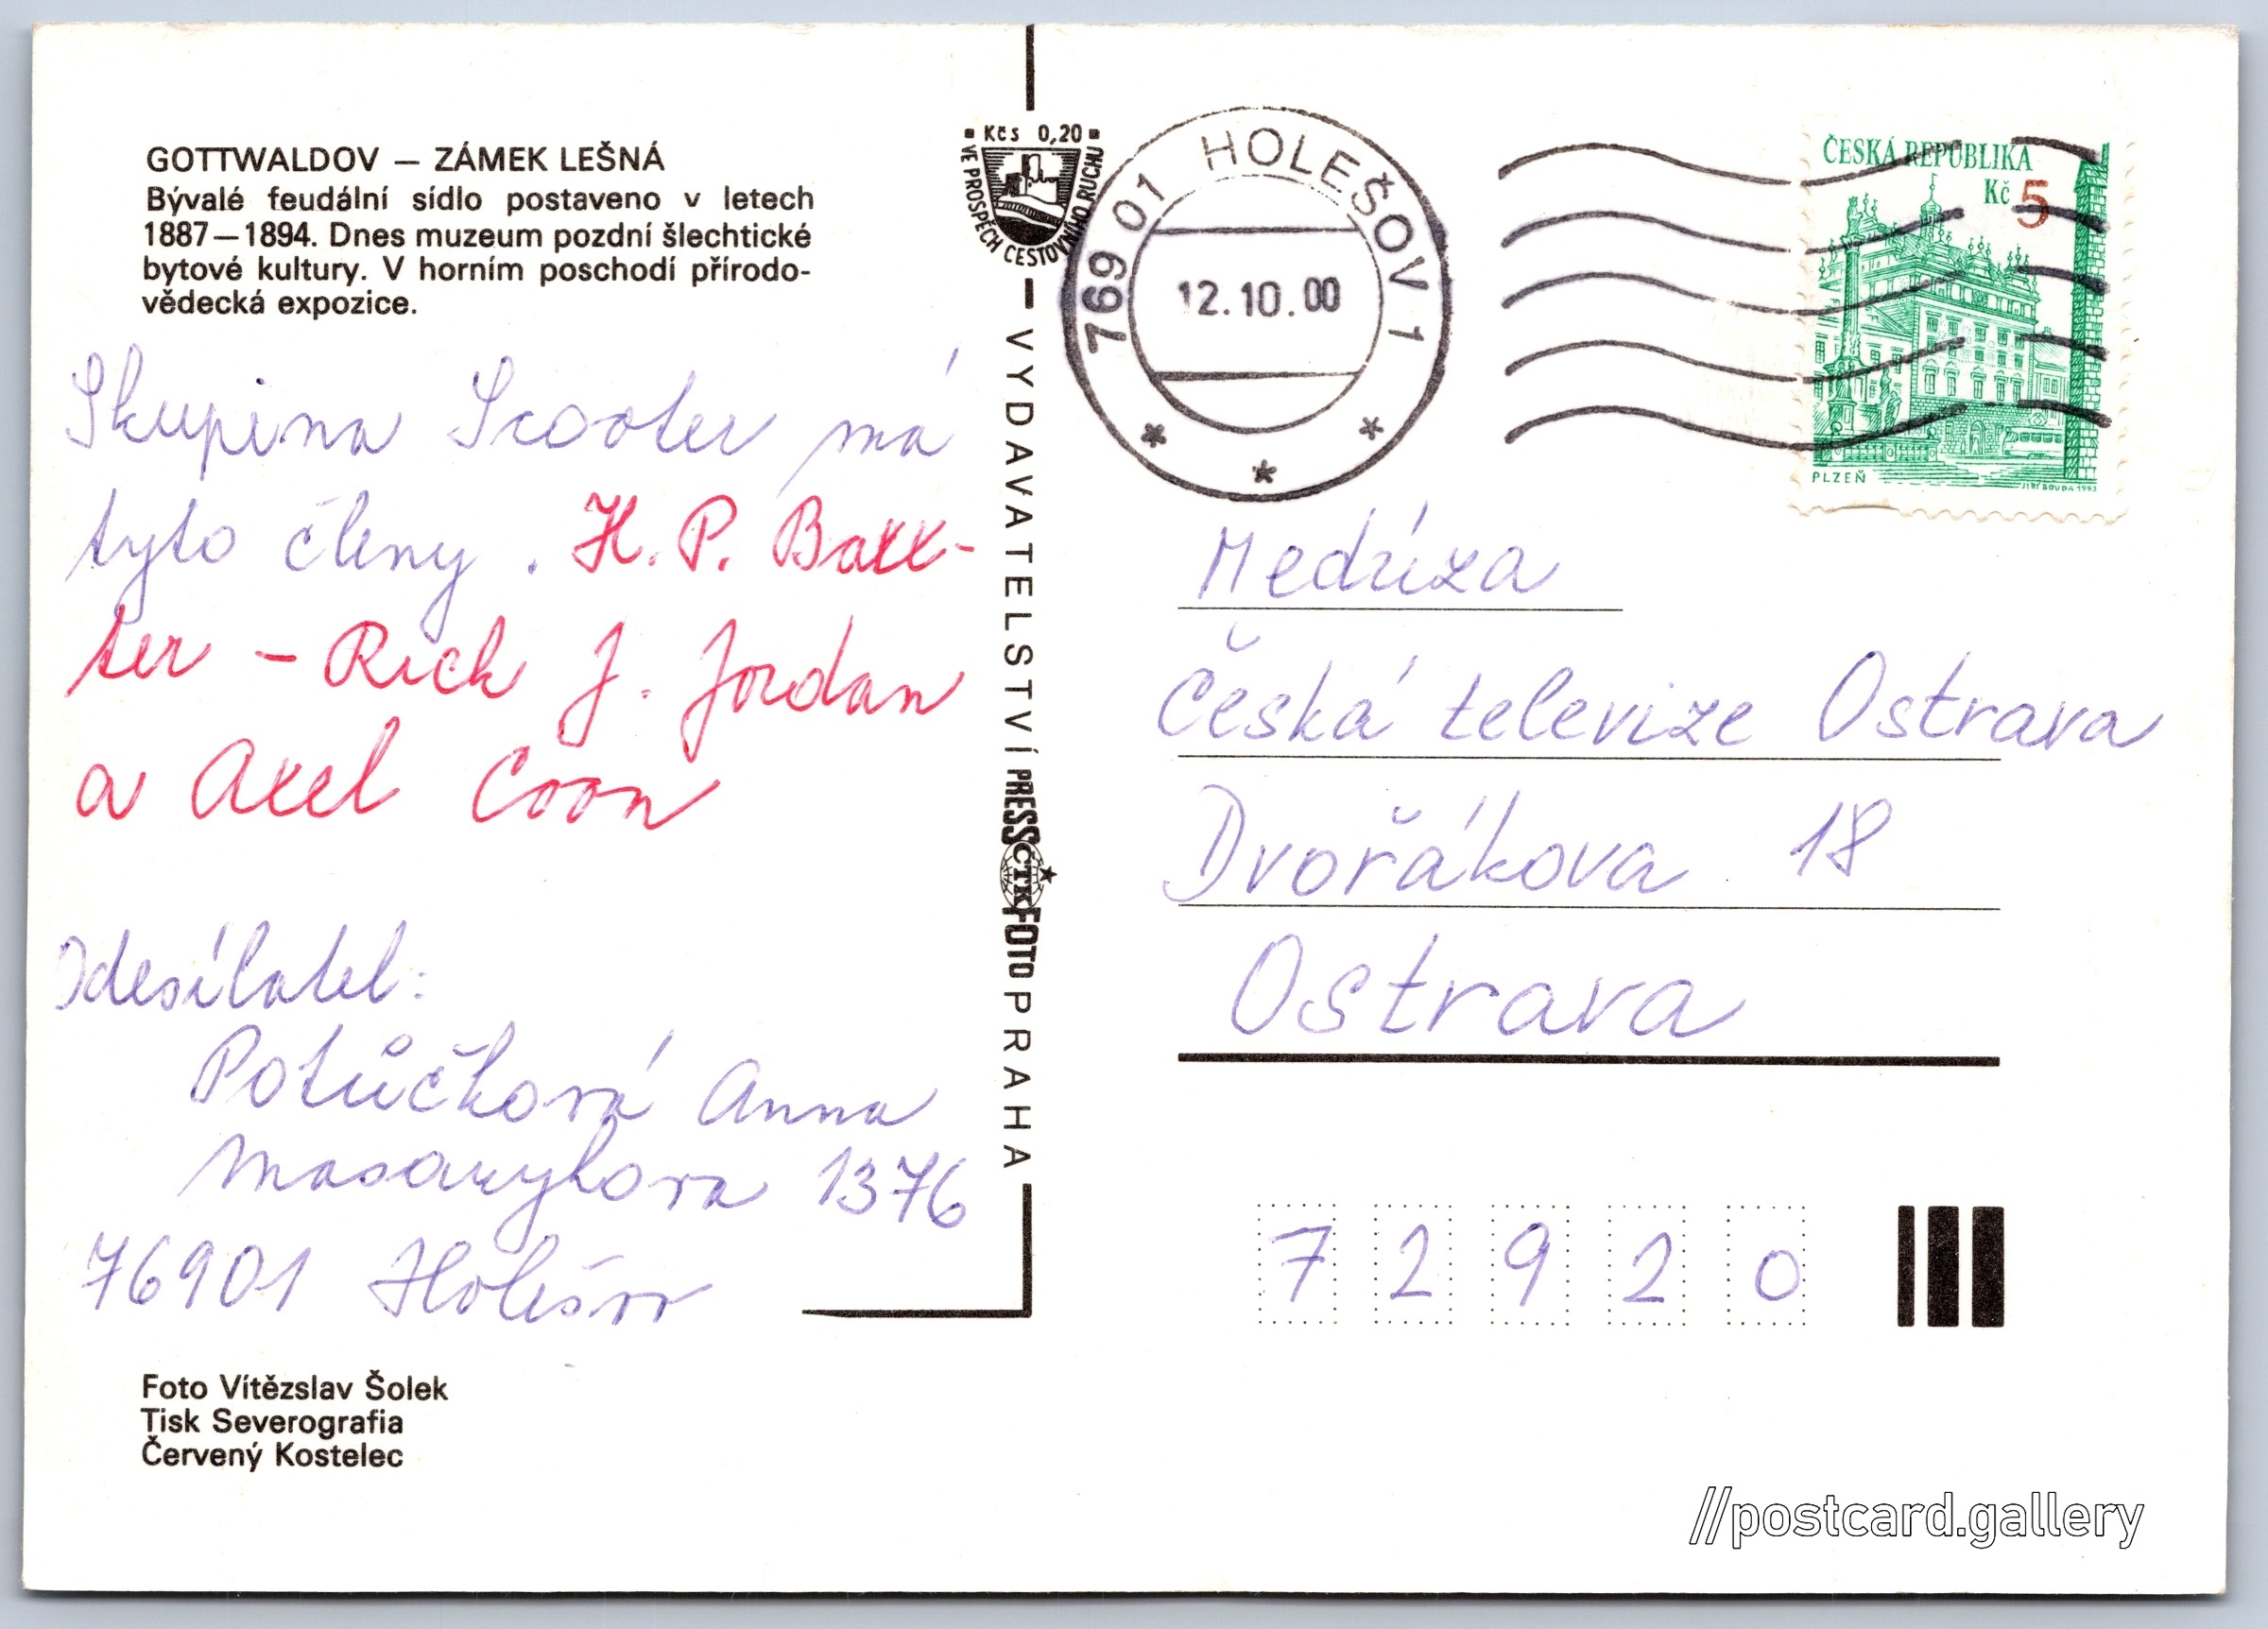 GOTTWALDOV — ZÁMEK LEŠNÁ
Bývalé feudální sídlo postaveno v letech
1887—1894. Dnes muzeum pozdní šlechtické
bytové kultury. V horním poschodí přírodo-
vědecká expozice.
Skupina Scooter má
tyto členy. H. P. Baxx-
ter - Rick J. Jordan
a Axel Coon
Odesílatel:
Potůčková Anna
Masarykova 1376
76901 Holešov
Foto Vítězslav Šolek
Tisk Severografia
Červený Kostelec
Kčs 0,20
VE PROSPĚCH CESTOVNÍHO RUCHU
VYDAVATELSTVÍ PRESSFOTO PRAHA
ČTK
769 01 HOLEŠOV 1
12.10.00
ČESKÁ REPUBLIKA
Kč 5
PLZEŇ
JIŘÍ BOUDA 1993
Medúza
Česká televize Ostrava
Dvořákova 18
Ostrava
7 2 9 2 0
//postcard.gallery